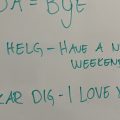 = BYE
HELG - HAVE A
WEEKEN
DIG - I LOVE